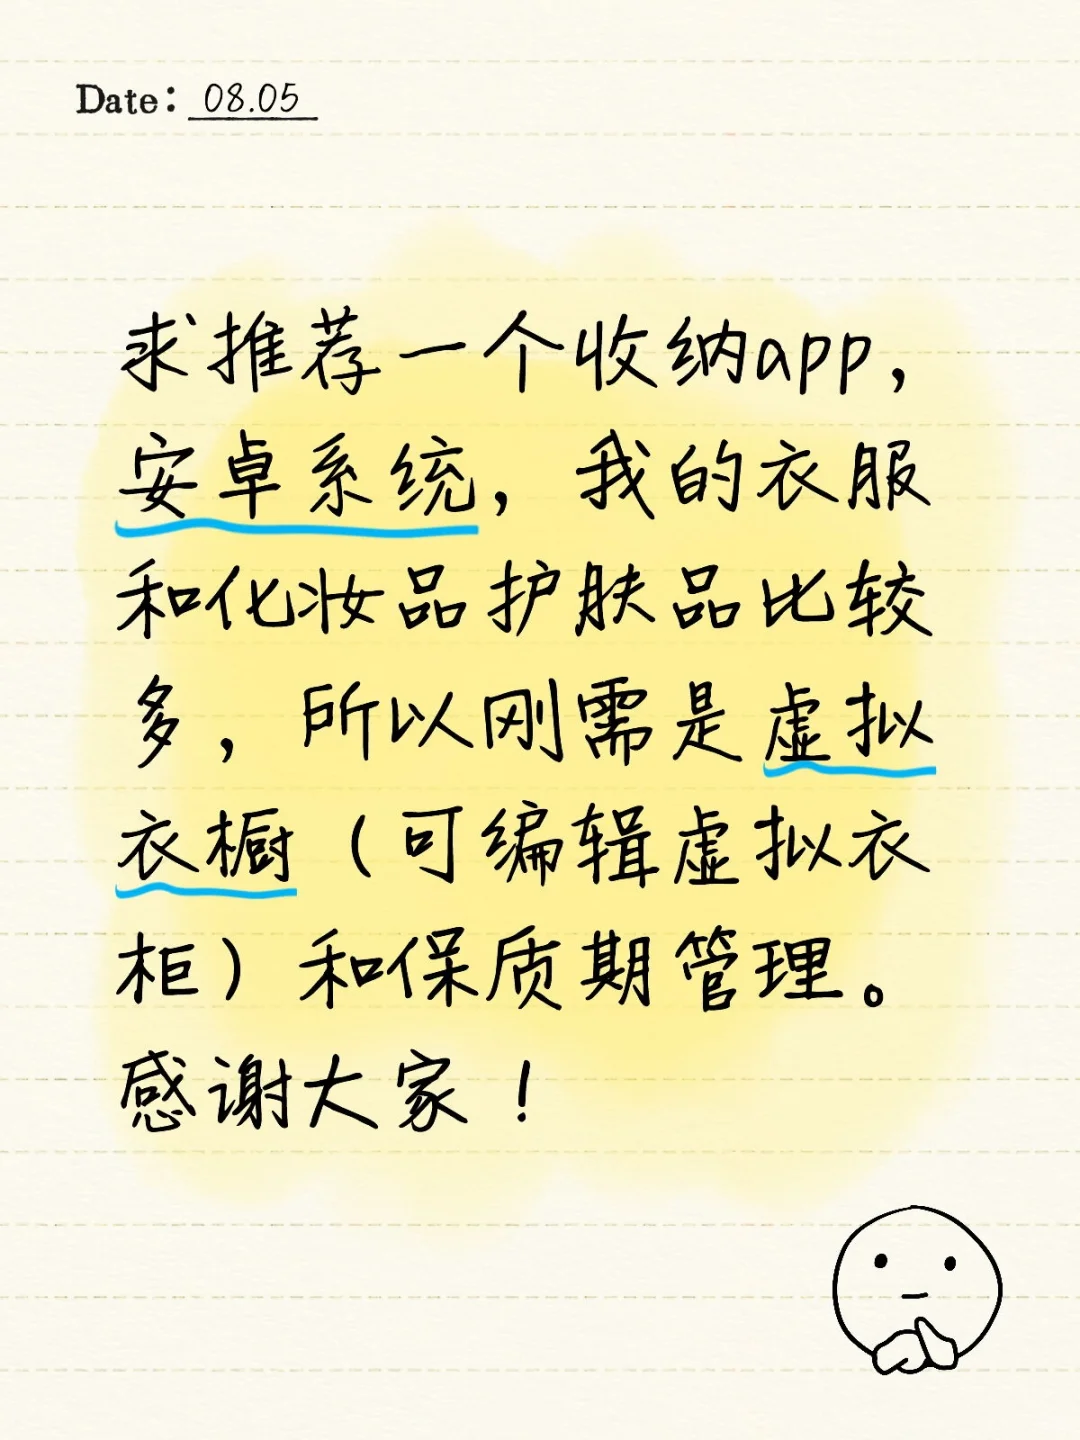 Date: 08.05
求推荐一个收纳app，
安卓系统，我的衣服
和化妆品护肤品比较
多，所以刚需是虚拟
衣橱（可编辑虚拟衣
柜）和保质期管理。
感谢大家！